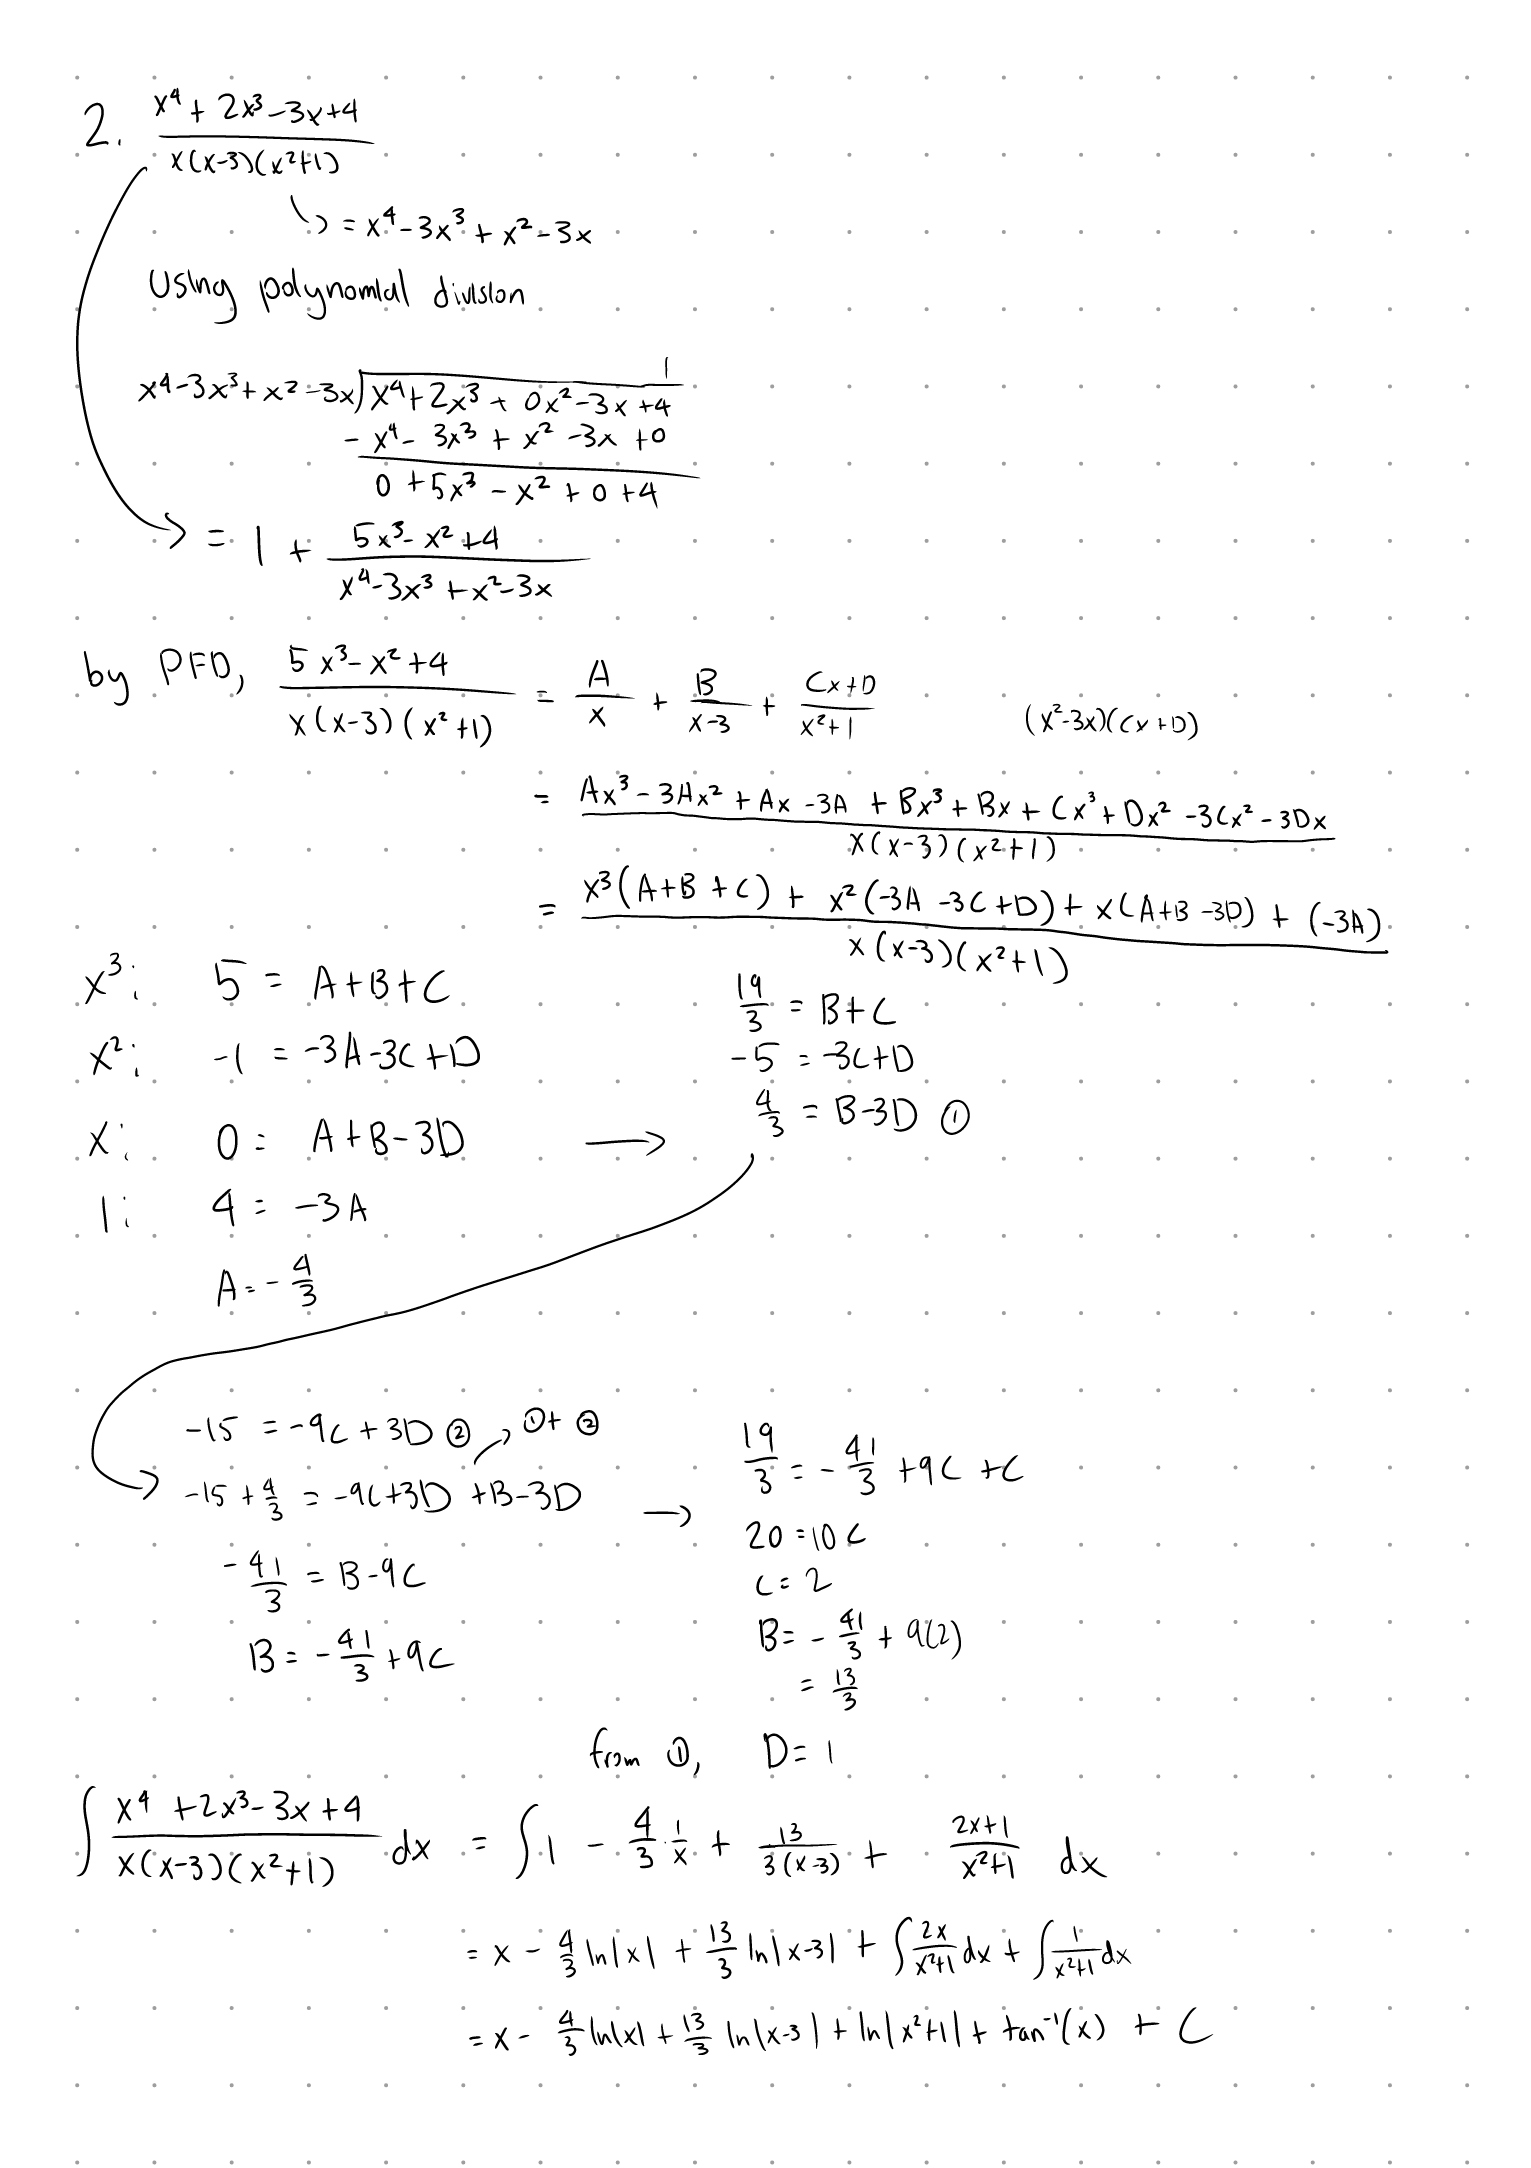 2. (x⁴ + 2x³ - 3x + 4)/(x(x-3)(x²+1))
↳ = x⁴ - 3x³ + x² - 3x
Using polynomial division
1
x⁴ - 3x³ + x² - 3x ) x⁴ + 2x³ + 0x² - 3x + 4
- x⁴ - 3x³ + x² - 3x + 0
0 + 5x³ - x² + 0 + 4
→ = 1 + (5x³ - x² + 4)/(x⁴ - 3x³ + x² - 3x)
by PFD, (5x³ - x² + 4)/(x(x-3)(x²+1)) = A/x + B/(x-3) + (Cx+D)/(x²+1)
(x²-3x)(Cx+D)
= (Ax³ - 3Ax² + Ax - 3A + Bx³ + Bx + Cx³ + Dx² - 3Cx² - 3Dx)/(x(x-3)(x²+1))
= (x³(A+B+C) + x²(-3A-3C+D) + x(A+B-3D) + (-3A))/(x(x-3)(x²+1))
x³: 5 = A+B+C
x²: -1 = -3A-3C+D
x: 0 = A+B-3D →
1: 4 = -3A
A = -4/3
19/3 = B+C
-5 = -3C+D
4/3 = B-3D ①
-15 = -9C + 3D ② → ①+②
→ -15 + 4/3 = -9C+3D + B-3D →
-41/3 = B-9C
B = -41/3 + 9C
19/3 = -41/3 + 9C + C
20 = 10C
C = 2
B = -41/3 + 9(2)
= 13/3
from ①, D = 1
∫ (x⁴ + 2x³ - 3x + 4)/(x(x-3)(x²+1)) dx = ∫ 1 - 4/3 · 1/x + 13/(3(x-3)) + (2x+1)/(x²+1) dx
= x - 4/3 ln|x| + 13/3 ln|x-3| + ∫ 2x/(x²+1) dx + ∫ 1/(x²+1) dx
= x - 4/3 ln|x| + 13/3 ln|x-3| + ln|x²+1| + tan⁻¹(x) + C